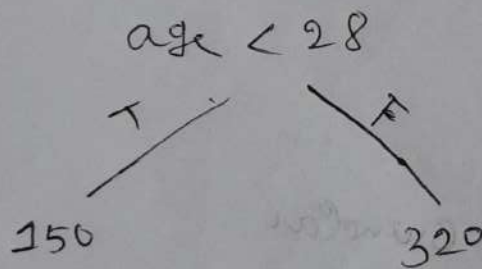 age < 28
T F
150 320